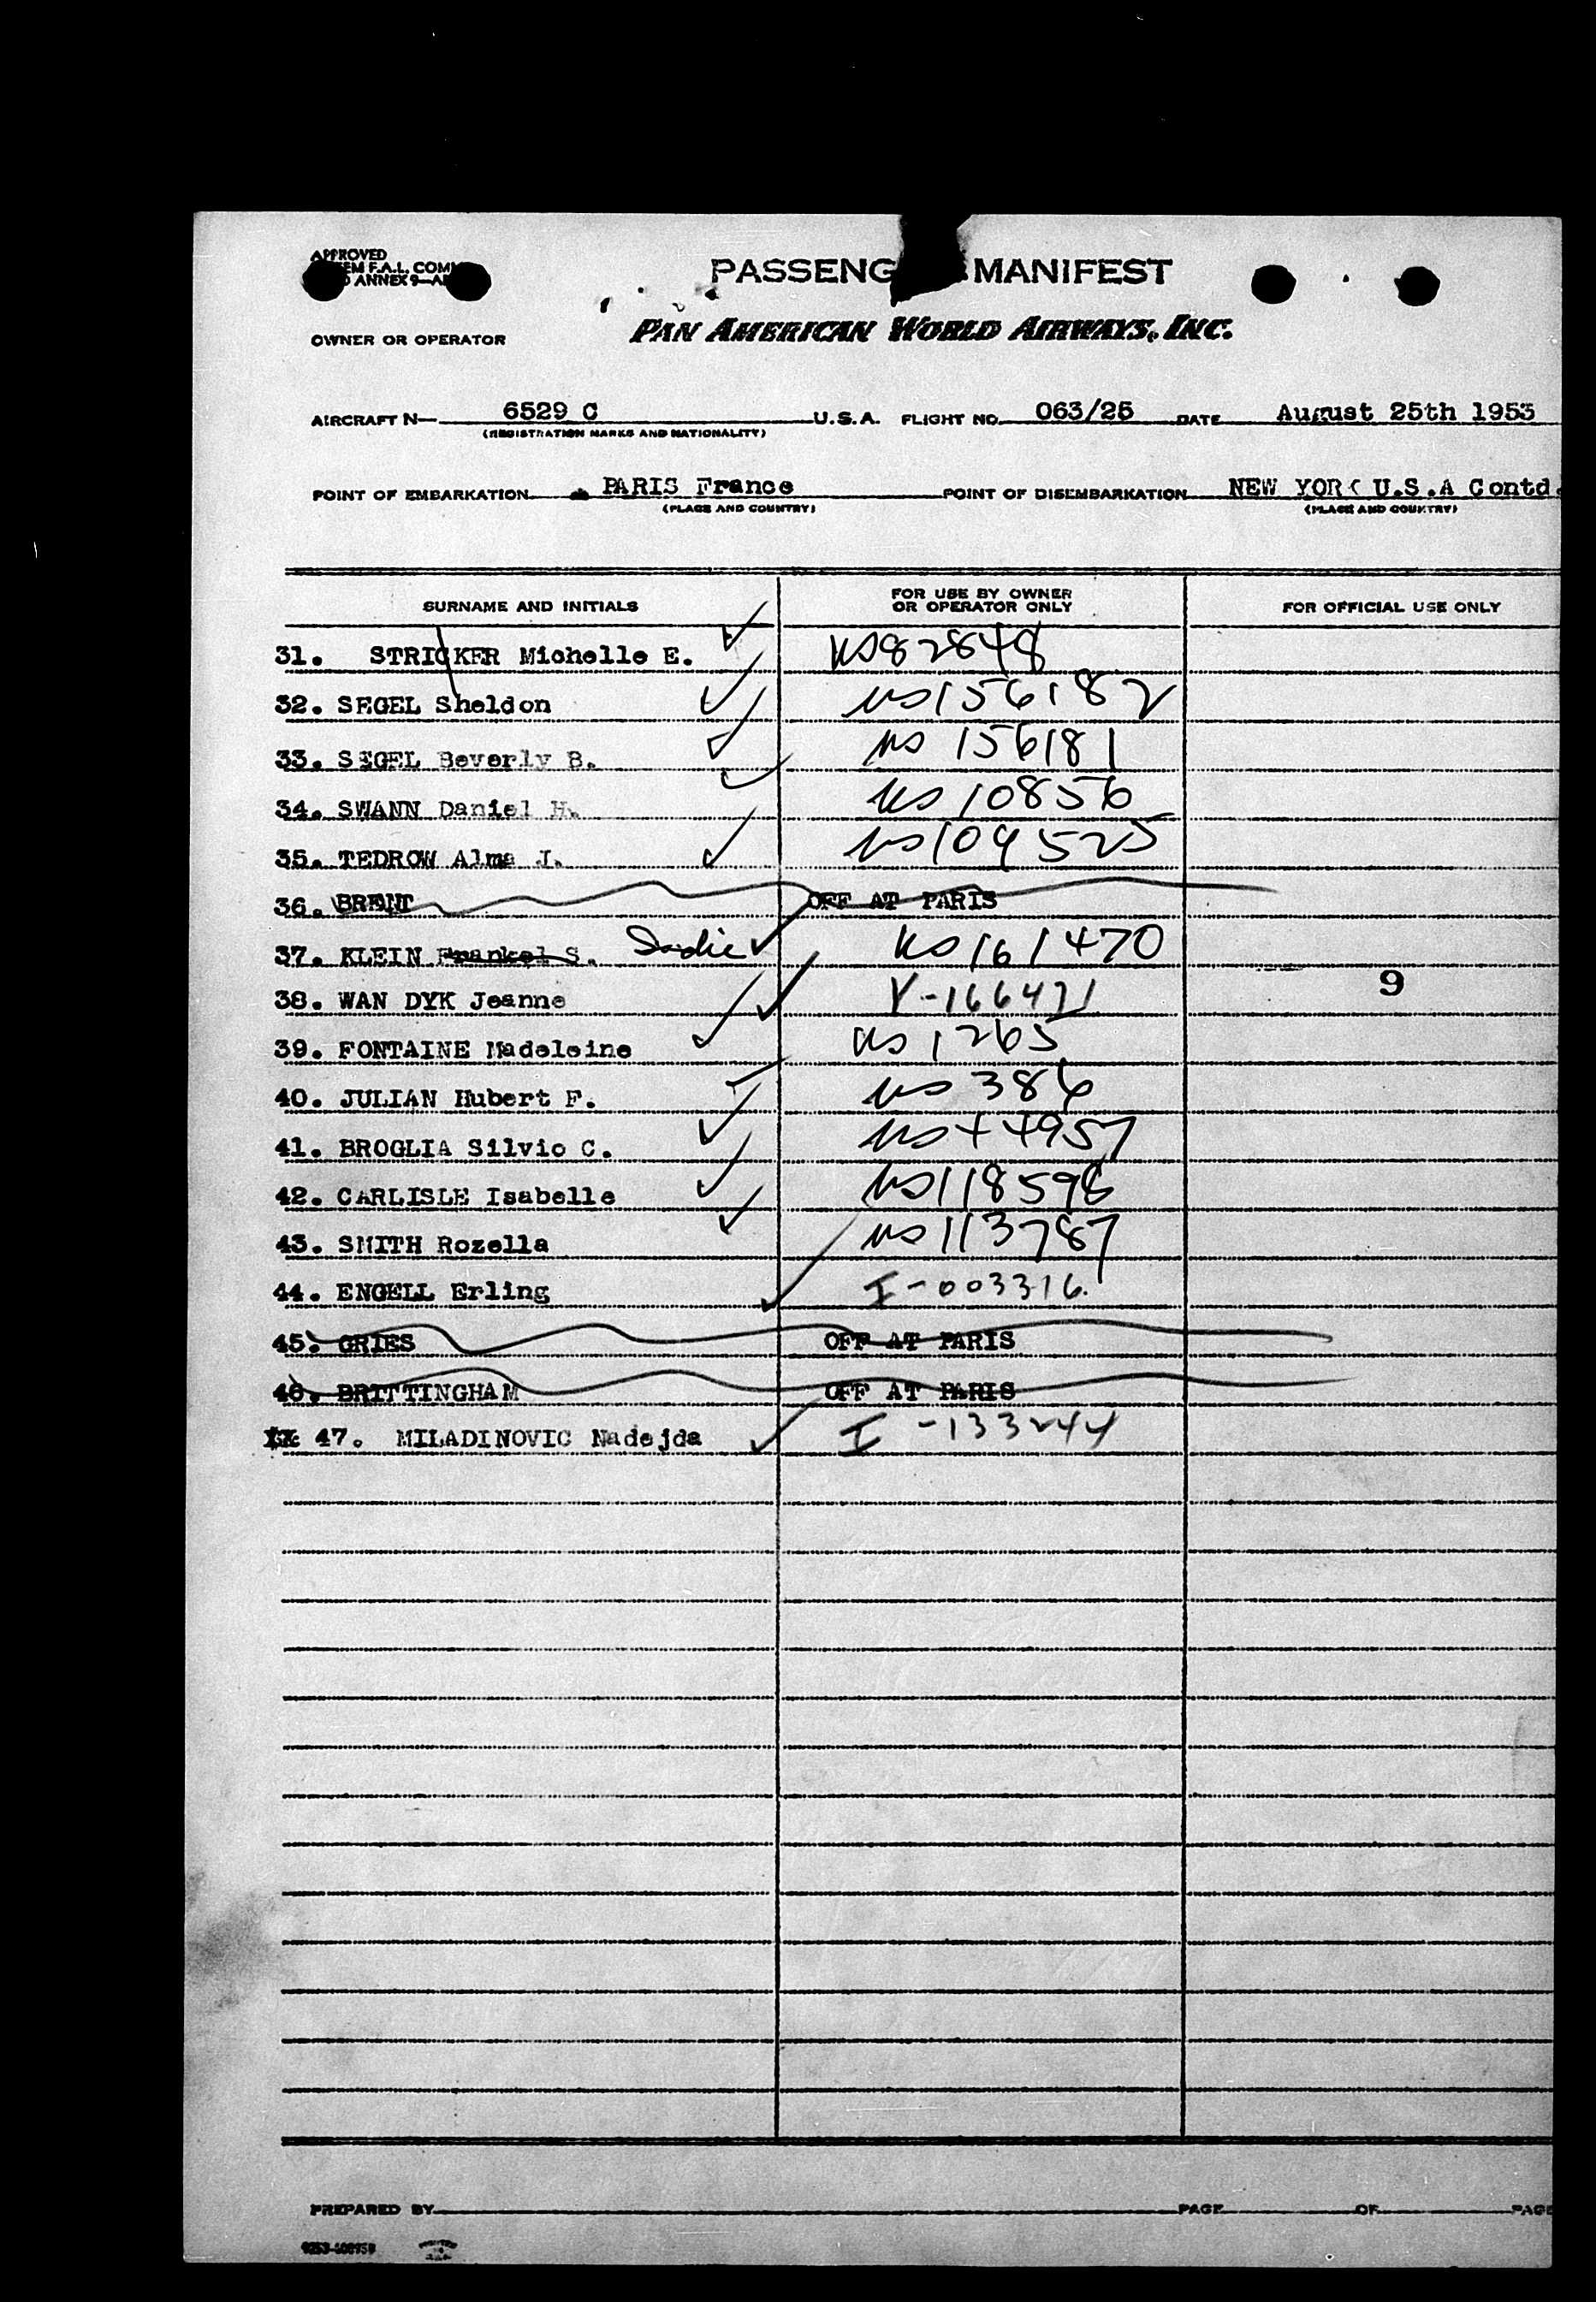 APPROVED
F.A.L. COM
ANNEX 9—A
PASSENG MANIFEST
OWNER OR OPERATOR
PAN AMERICAN WORLD AIRWAYS, INC.
AIRCRAFT N— 6529 C U.S.A. FLIGHT NO. 063/25 DATE August 25th 1953
(REGISTRATION MARKS AND NATIONALITY)
POINT OF EMBARKATION PARIS France POINT OF DISEMBARKATION NEW YORK U.S.A Contd.
(PLACE AND COUNTRY) (PLACE AND COUNTRY)
SURNAME AND INITIALS FOR USE BY OWNER OR OPERATOR ONLY FOR OFFICIAL USE ONLY
31. STRICKER Michelle E. US82848
32. SEGEL Sheldon US156182
33. SEGEL Beverly B. US 156181
34. SWANN Daniel H. US 10856
35. TEDROW Alma J. US109525
36. BRENT OFF AT PARIS
37. KLEIN Frankel S. Sadie US161470
38. WAN DYK Jeanne V-166471
9
39. FONTAINE Madeleine US 1265
40. JULIAN Hubert F. US 386
41. BROGLIA Silvio C. US44957
42. CARLISLE Isabelle US118598
43. SMITH Rozella US113787
44. ENGELL Erling I-003316.
45. GRIES OFF AT PARIS
46. BRITTINGHAM OFF AT PARIS
47. MILADINOVIC Nadejda I-133244
PREPARED BY PAGE OF PAGE